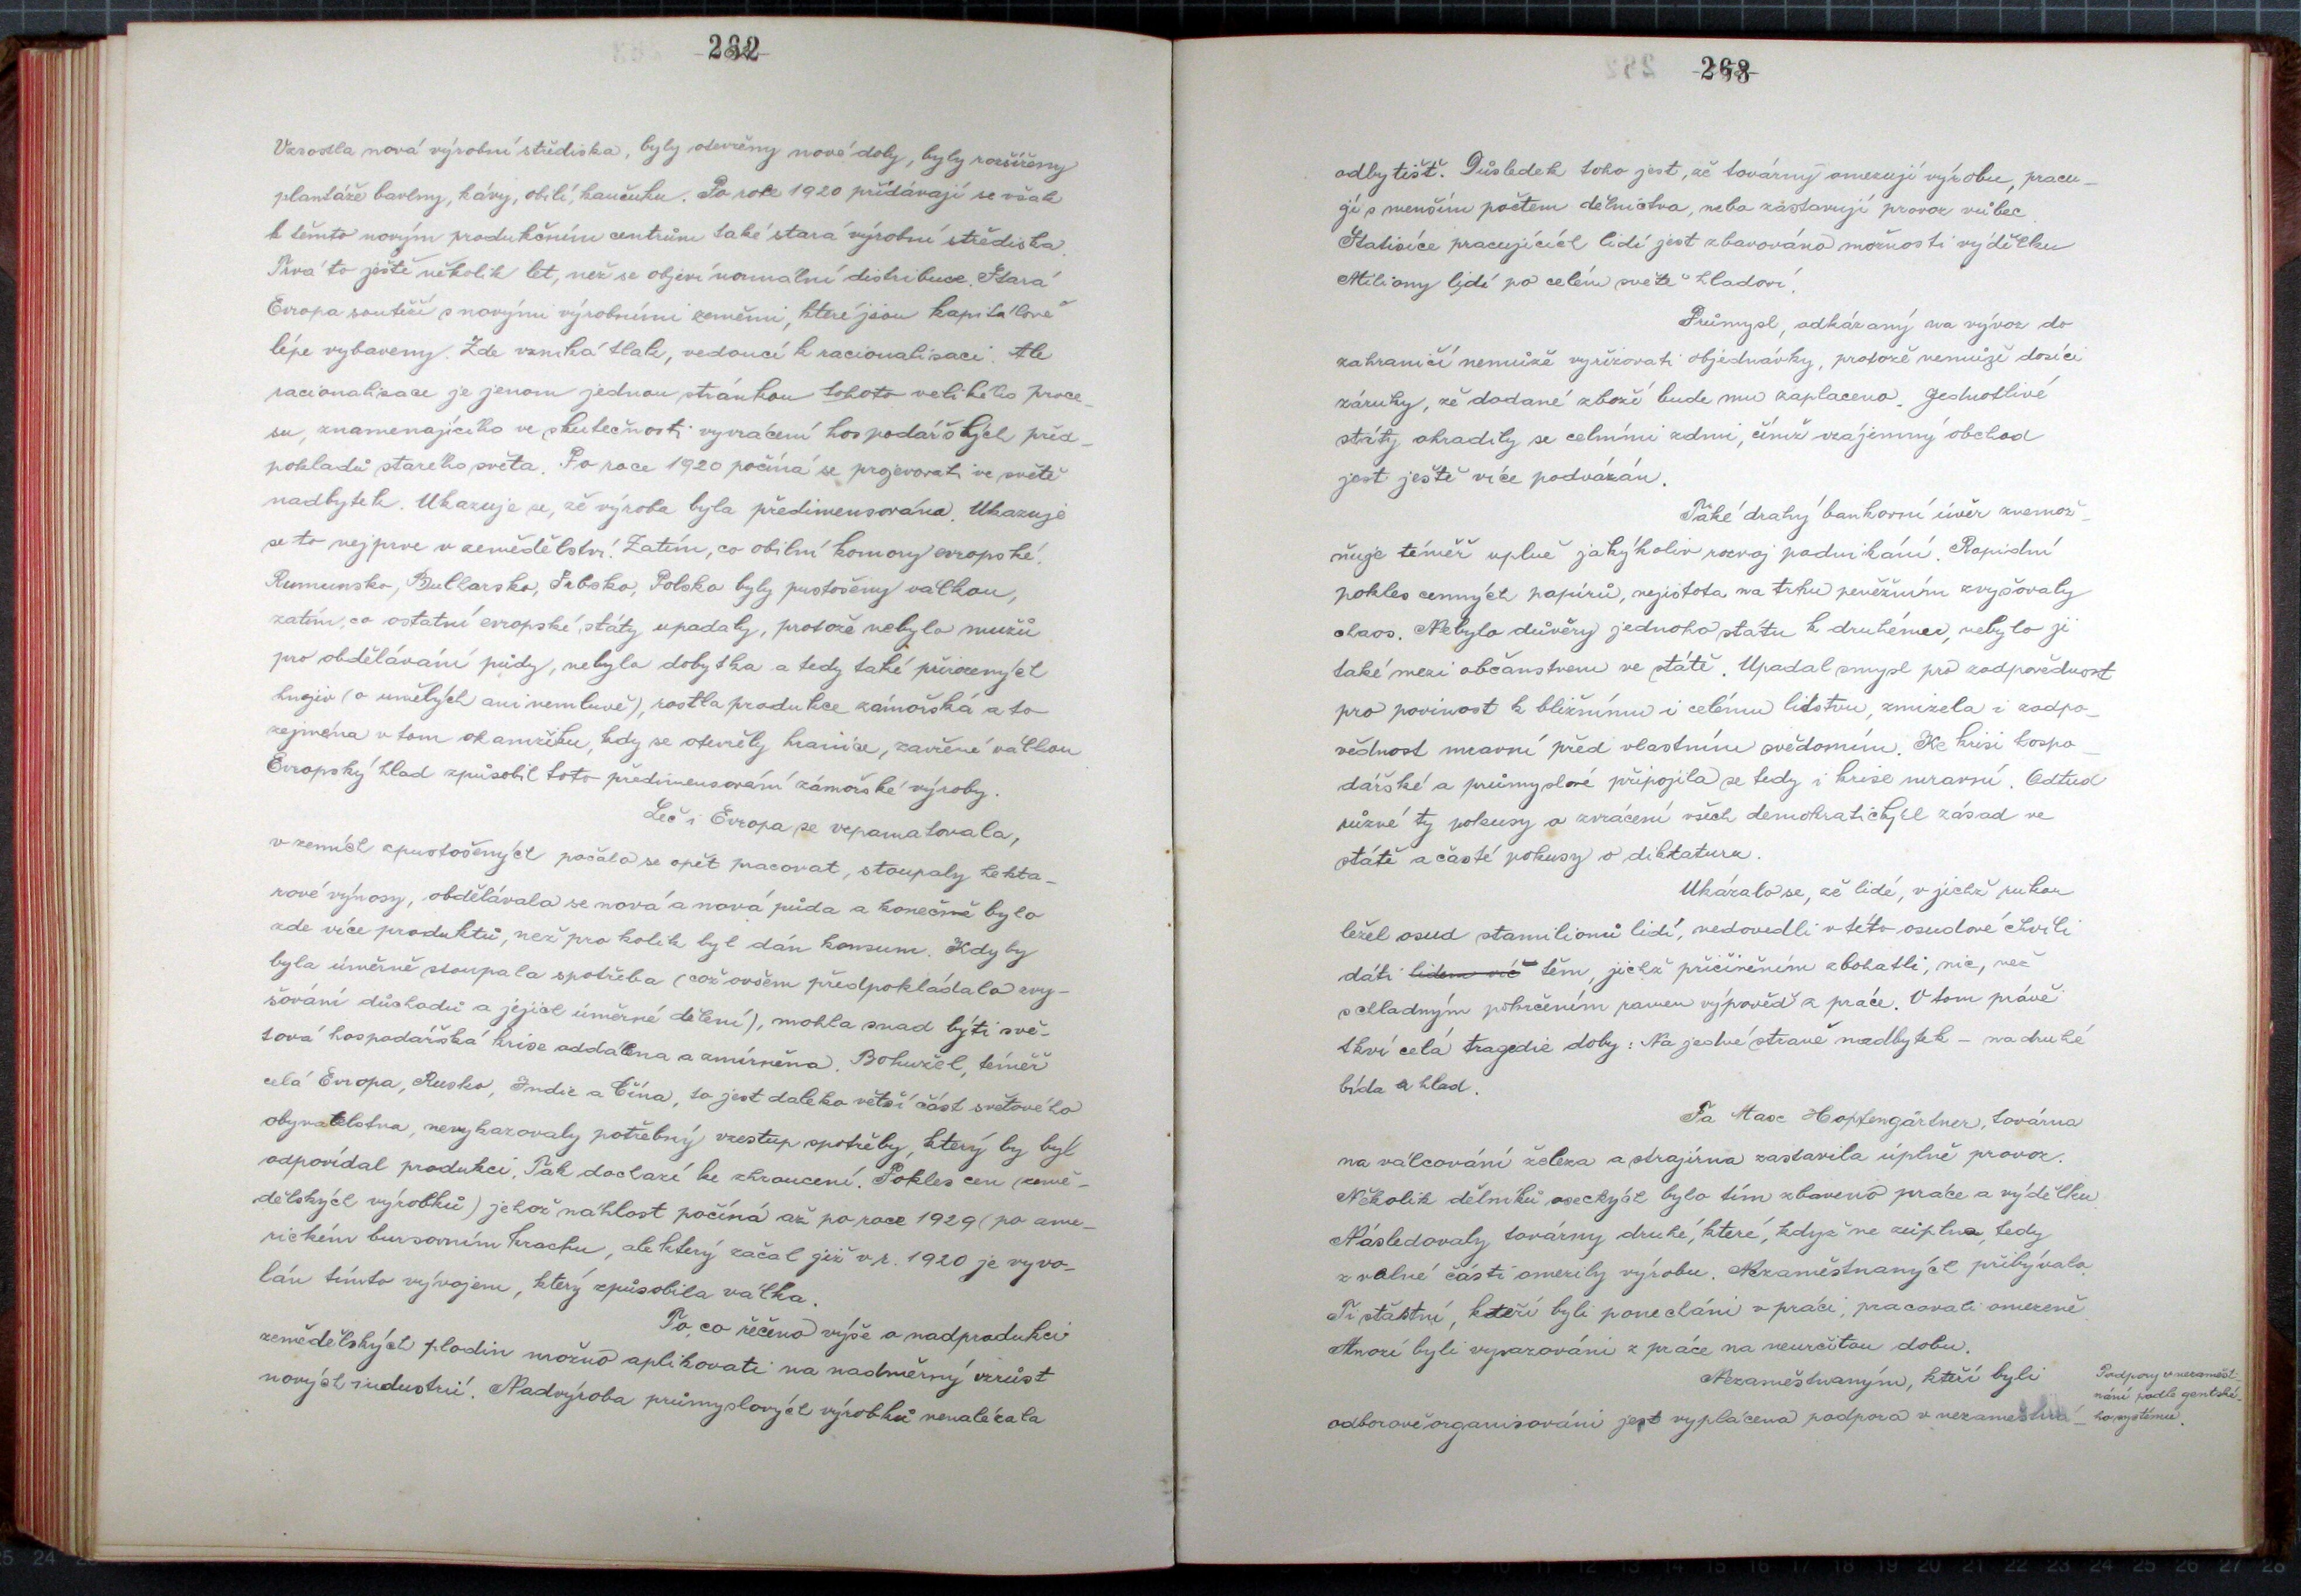 282
Vzrostla nová výrobní střediska, byly otevřeny nové doly, byly rozšířeny
plantáže bavlny, kávy, obilí, kaučuku. Po roce 1920 přidávají se však
k těmto novým produkčním centrům také stará výrobní střediska.
Trvá to ještě několik let, než se objeví normální distribuce. Stará
Evropa soutěží s novými výrobními zeměmi, které jsou kapitálově
lépe vybaveny. Zde vzniká tlak, vedoucí k racionalisaci. Ale
racionalisace je jenom jednou stránkou tohoto velikého proce-
su, znamenajícího ve skutečnosti vyvrácení hospodářských před-
pokladů starého světa. Po roce 1920 počíná se projevovati ve světě
nadbytek. Ukazuje se, že výroba byla předimensována. Ukazuje
se to nejprve v zemědělství. Zatím, co obilní komory evropské:
Rumunsko, Bulharsko, Srbsko, Polsko byly pustošeny válkou,
zatím, co ostatní evropské státy upadaly, protože nebylo mužů
pro obdělávání půdy, nebylo dobytka a tedy také přirozených
hnojiv (o umělých ani nemluvě), rostla produkce zámořská a to
zejména v tom okamžiku, kdy se otevřely hranice, zavřené válkou
Evropský hlad způsobil toto předimensování zámořské výroby.
Leč i Evropa se vzpamatovala,
v zemích zpustošených počalo se opět pracovat, stoupaly hekta-
rové výnosy, obdělávala se nová a nová půda a konečně bylo
zde více produktů, než pro kolik byl dán konsum. Kdyby
byla úměrně stoupala spotřeba (což ovšem předpokládalo zvy-
šování důchodů a jejich úměrné dělení), mohla snad býti svě-
tová hospodářská krise oddálena a zmírněna. Bohužel, téměř
celá Evropa, Rusko, Indie a Čína, to jest daleko větší část světového
obyvatelstva, nevykazovaly potřebný vzestup spotřeby, který by byl
odpovídal produkci. Tak dochází ke zhroucení. Pokles cen (země-
dělských výrobků) jehož náhlost počíná až po roce 1929 (po ame-
rickém bursovním krachu, ale který začal již v r. 1920 je vyvo-
lán tímto vývojem, který způsobila válka.
To, co řečeno výše o nadprodukci
zemědělských plodin možno aplikovati na nadměrný vzrůst
nových industrií. Nadvýroba průmyslových výrobků nenalézala
odbytišť. Důsledek toho jest, že továrny omezují výrobu, pracu-
jí s menším počtem dělnictva, nebo zastavují provoz vůbec.
Statisíce pracujících lidí jest zbavováno možnosti výdělku
Miliony lidí po celém světě hladoví.
Průmysl, odkázaný na vývoz do
zahraničí nemůže vyřizovati objednávky, protože nemůže docíci
záruky, že dodané zboží bude mu zaplaceno. Jednotlivé
státy ohradily se celními zdmi, čímž vzájemný obchod
jest ještě více podvázán.
Také drahý bankovní úvěr znemož-
ňuje téměř uplně jakýkoliv rozvoj podnikání. Rapidní
pokles cenných papírů, nejistota na trhu peněžním zvyšovaly
chaos. Nebylo důvěry jednoho státu k druhému, nebylo jí
také mezi občanstvem ve státě. Upadal smysl pro zodpovědnost
pro povinost k bližnímu i celému lidstvu, zmizela i zodpo-
vědnost mravní před vlastním svědomím. Ke krisi hospo-
dářské a průmyslové připojila se tedy i krise mravní. Odtud
různé ty pokusy o zvrácení všech demokratických zásad ve
státě a časté pokusy o diktaturu.
Ukázalo se, že lidé, v jichž rukou
ležel osud stamilionů lidí, nedovedli v této osudové chvíli
dáti lidem víc těm, jichž přičiněním zbohatli, nic, než
s chladným pokrčením ramen výpověď z práce. V tom právě
tkví celá tragedie doby: Na jedné straně nadbytek - na druhé
bída a hlad.
Fa Max Hopfengärtner, továrna
na válcování železa a strojírna zastavila úplně provoz.
Několik dělníků oseckých bylo tím zbaveno práce a výdělku
Následovaly továrny druhé, které, když ne zúplna, tedy
z valné části omezily výrobu. Nezaměstnaných přibývalo.
Ti šťastní, kteří byli ponecháni v práci, pracovali omezeně
Mnozí byli vysazováni z práce na neurčitou dobu.
Nezaměstnaným, kteří byli
odborově organisováni jest vyplácena podpora v nezaměstná-
Podpory v nezaměst-
nání podle gentské-
ho systému.